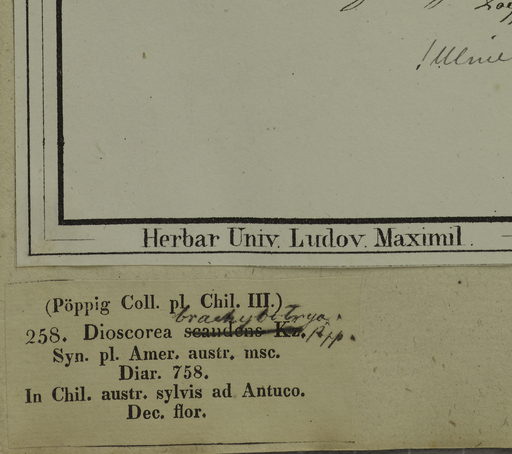 Herbar Univ. Ludov. Maximil.
(Pöppig Coll. pl. Chil. III.)
brachybotrya
258. Dioscorea scandens Kz. Pöpp.
Syn. pl. Amer. austr. msc.
Diar. 758.
In Chil. austr. sylvis ad Antuco.
Dec. flor.